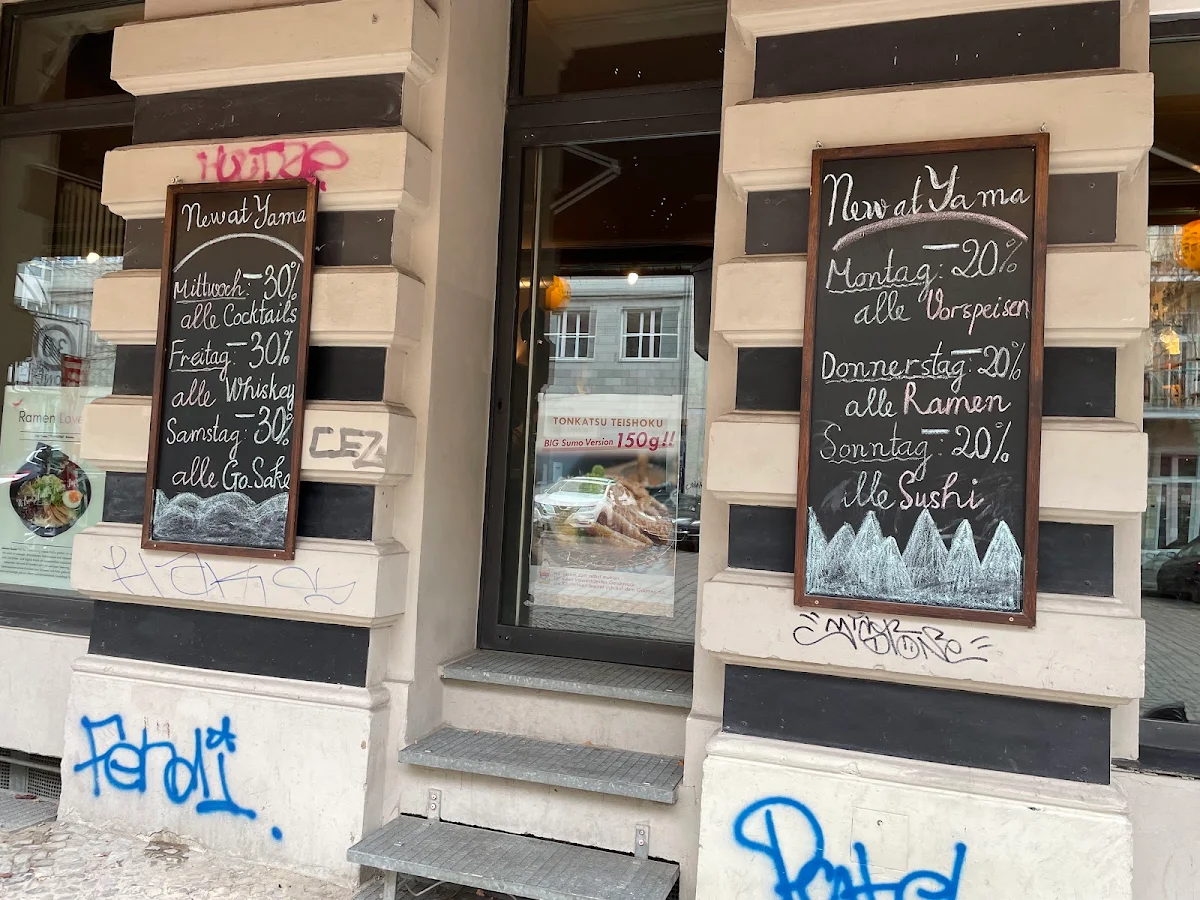 New at Yama
Mittwoch: -30%
alle Cocktails
Freitag: -30%
alle Whiskey
Samstag: -30%
alle Go.Sake
Ramen Love
TONKATSU TEISHOKU
BIG Sumo Version 150g!!
New at Yama
Montag: -20%
alle Vorspeisen
Donnerstag: -20%
alle Ramen
Sonntag: -20%
alle Sushi
CEZ
Fendi